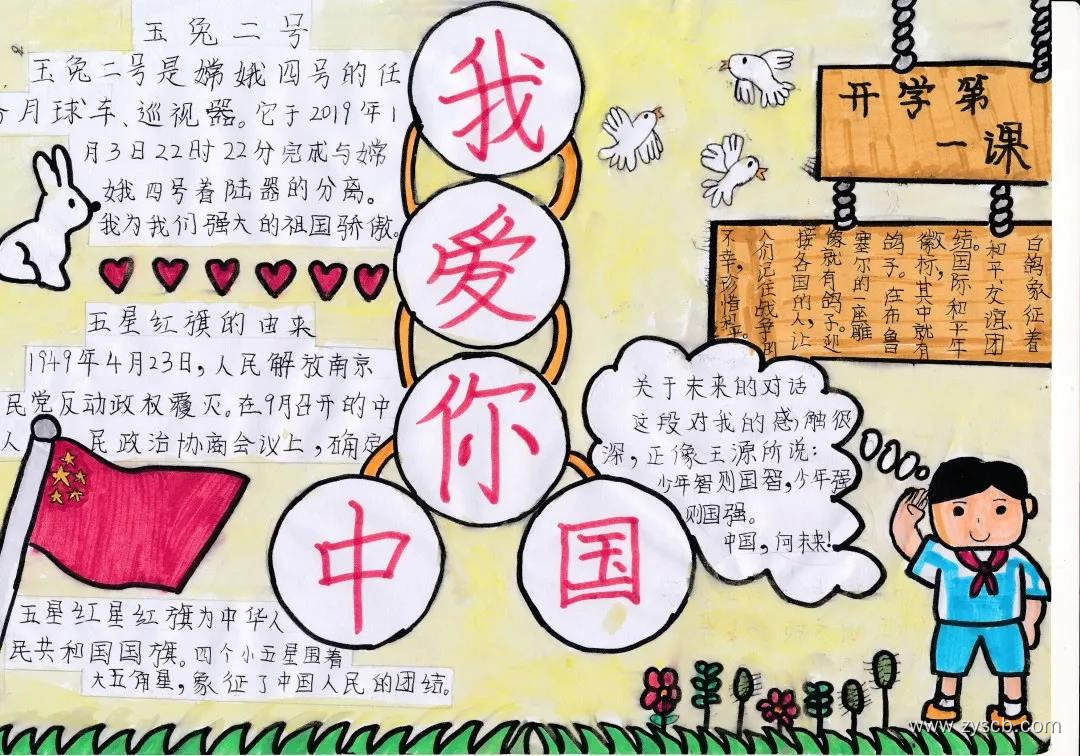 玉兔二号
玉兔二号是嫦娥四号的任
务月球车、巡视器。它于2019年1
月3日22时22分完成与嫦
娥四号着陆器的分离。
我为我们强大的祖国骄傲。
五星红旗的由来
1949年4月23日,人民解放南京
民党反动政权覆灭。在9月召开的中
人 民政治协商会议上,确定
五星红星红旗为中华人
民共和国国旗。四个小五星围着
大五角星,象征了中国人民的团结。
我
爱
你
中
国
开学第
一课
白鸽象征着
和平友谊团
结。国际和平年
徽标,其中就有
鸽子。在布鲁
塞尔的一座雕
像就有鸽子。迎
接各国的人,让
人们记住战争的
不幸,珍惜和平。
关于未来的对话
这段对我的感触很
深,正像王源所说:
少年智则国智,少年强
则国强。
中国,向未来!
www.zyscb.com